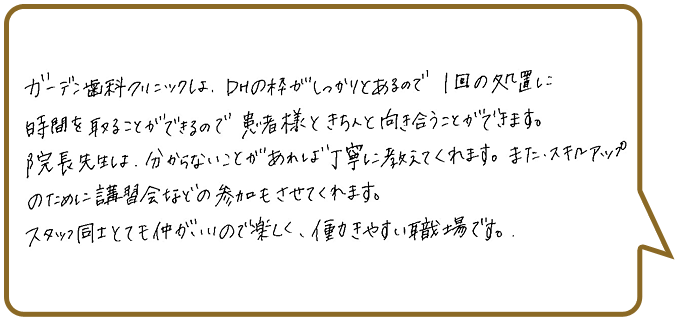 ガーデン歯科クリニックは、DHの枠がしっかりとあるので 1回の処置に
時間を取ることができるので患者様ときちんと向き合うことができます。
院長先生は、分からないことがあれば丁寧に教えてくれます。また、スキルアップ
のために講習会などの参加もさせてくれます。
スタッフ同士とても仲がいいので楽しく、働きやすい職場です。